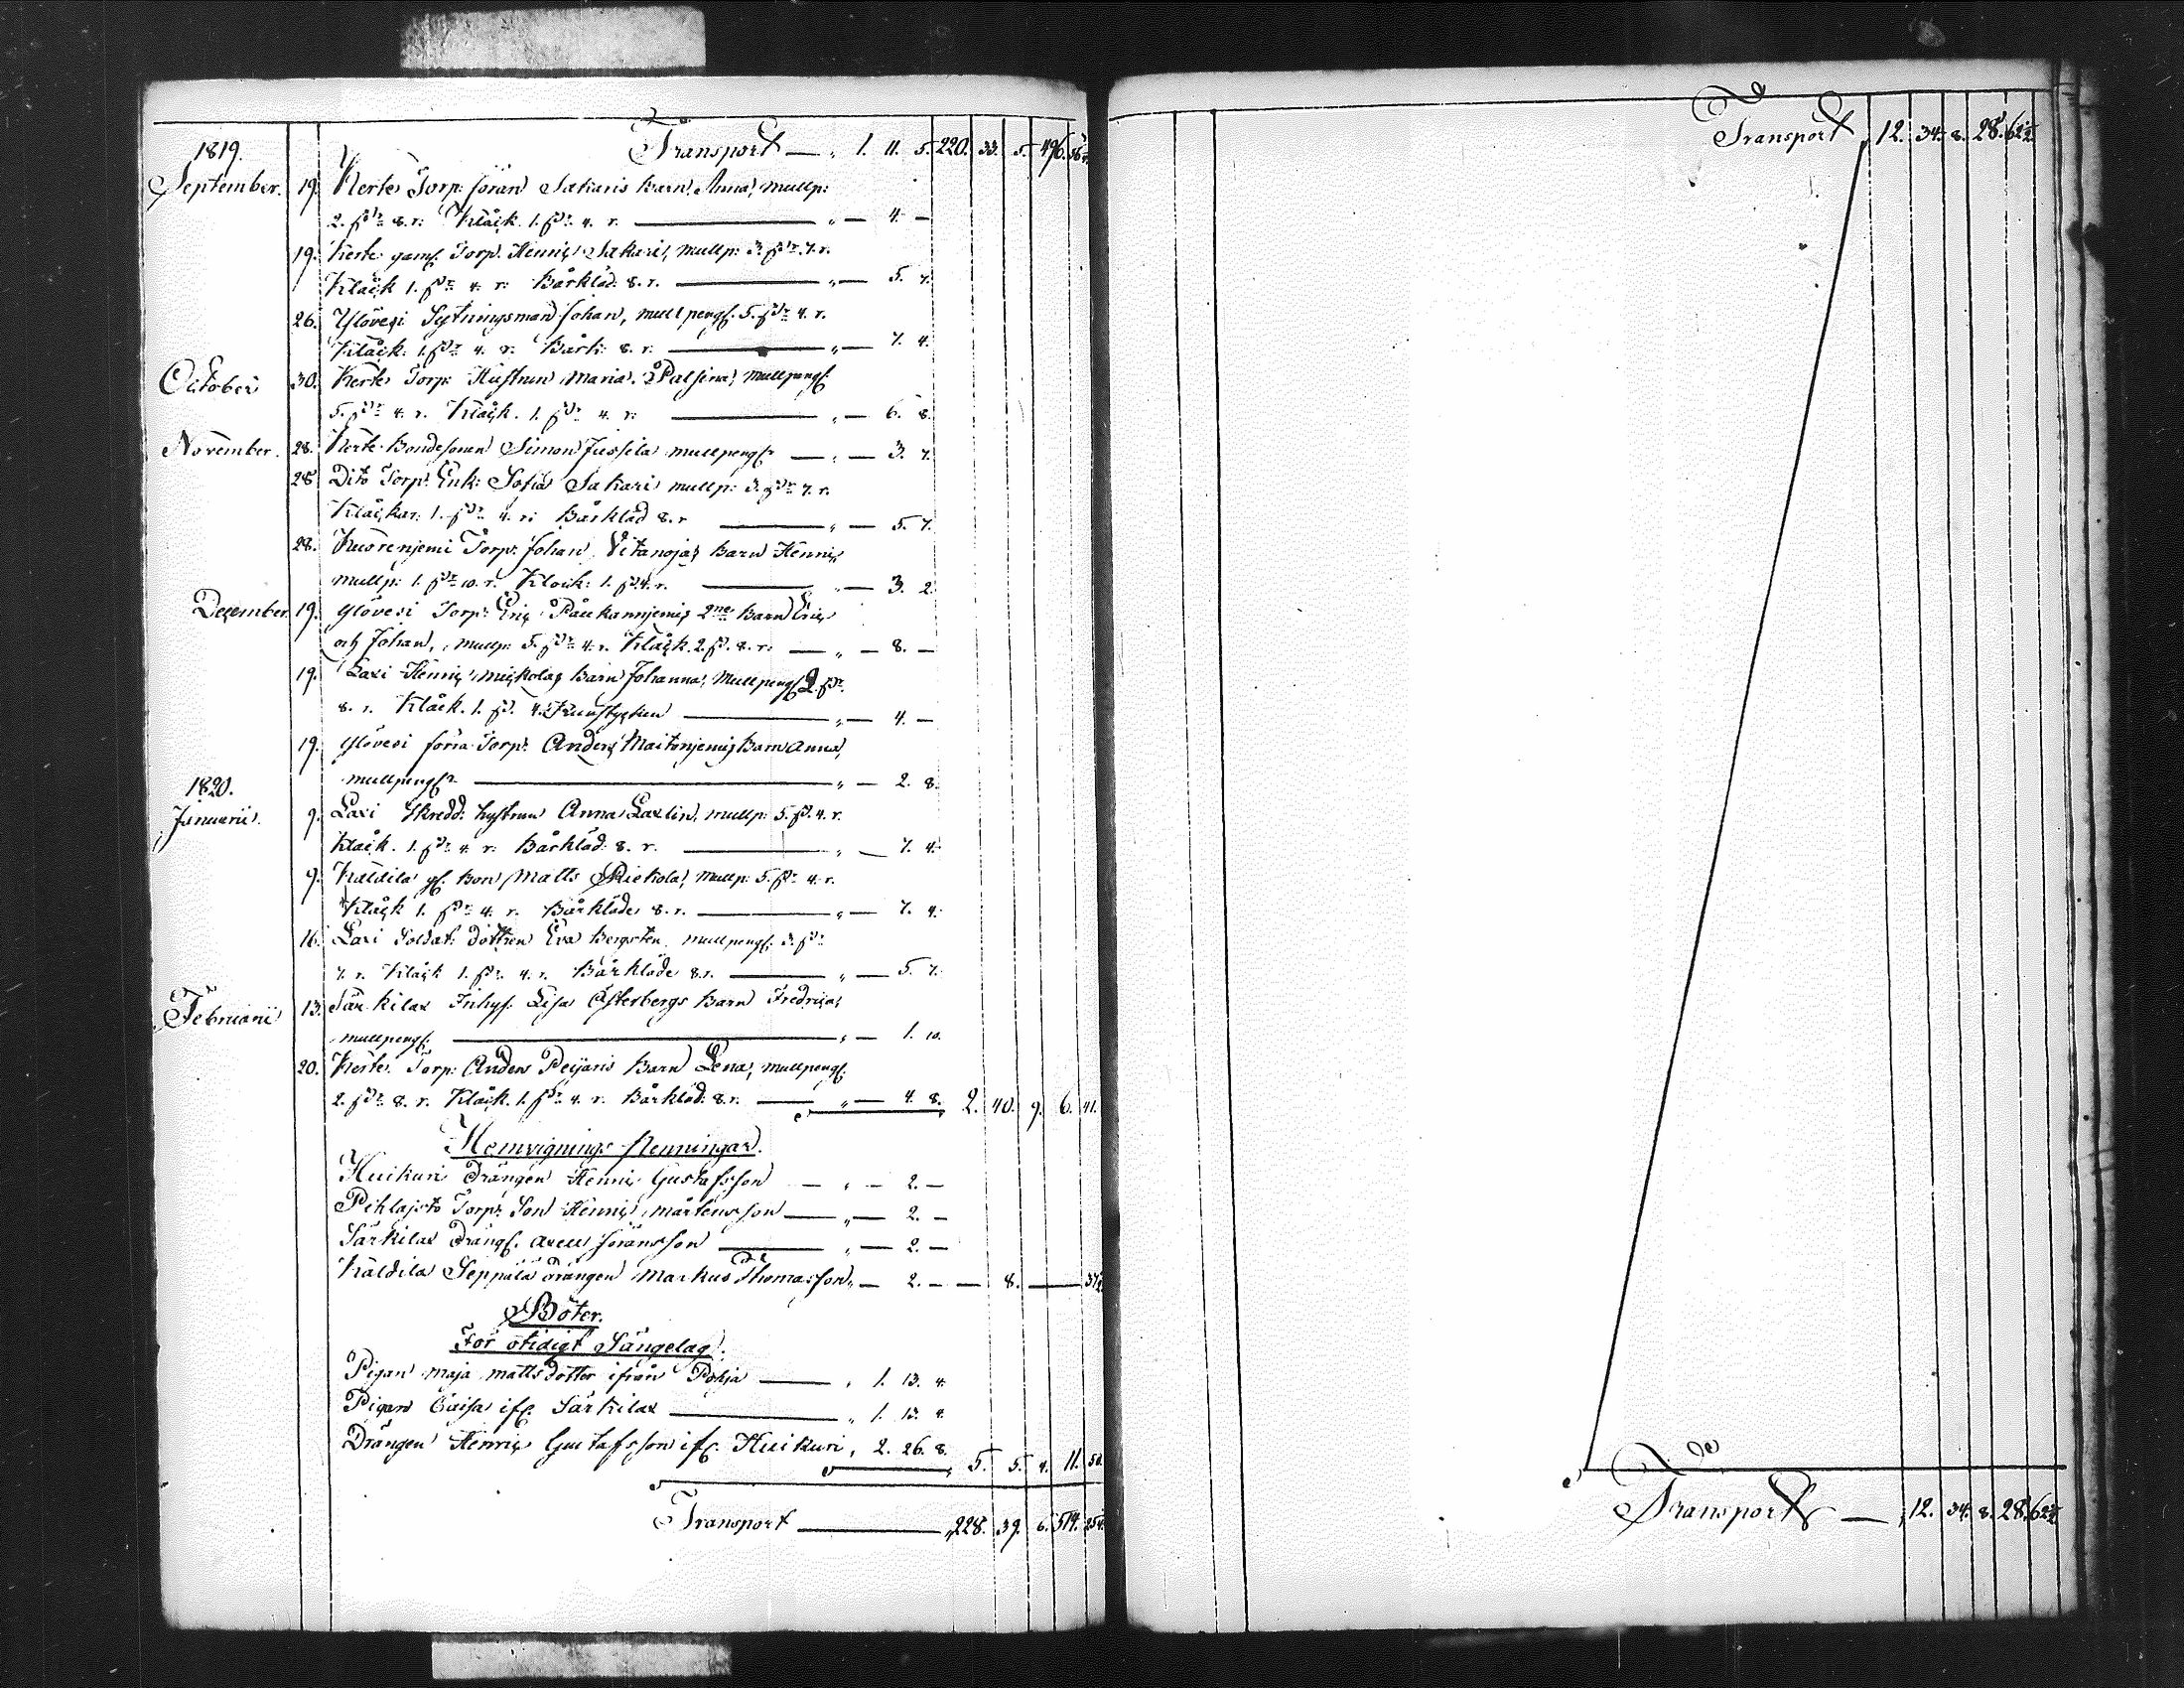 1819. Transport — „ 1. 11. 5. 220. 33. 5. 496. 56
September. 19. Kerte Torp: Jöran Sakaris barn Anna, mullp:
2. sdr 8. r: Klåck. 1. sdr 4. r. — „ — 4. —
19. Kerte gaml. Torp. Henric Sakari, mullp: 3. sdr 7. r.
Klåck 1. sdr 4. r: Bårkläd: 8. r. — „ — 5. 7.
26. Ylövesi Sytningsman Johan, mullpeng: 5. sdr 4. r.
Klåck: 1. sdr 4. r. Bårk: 8. r. — „ — 7. 4.
October 30. Kerte Torp: Hustrun Maria Palsina, mullpeng:
5. sdr 4. r. Klåck. 1. sdr 4. r: — „ — 6. 8.
November. 28. Kerte Bondesonen Simon Jussila mullpengr — „ — 3. 7.
28. Dito Torp: Enk: Sofia Sakari mullp: 3. sdr 7. r.
Klåckar: 1. sdr 4. r: Bårkläd 8. r — „ — 5. 7.
28. Kuorenjemi Torp: Johan Vitanojas barn Henric
mullp: 1. sdr 10. r. Klock: 1. sd. 4. r. — „ — 3. 2.
December 19. Ylövesi Torp: Eric Paukannjemis 2ne Barn Eric
och Johan, mullp: 5. sdr 4. r. Klåck. 2. sd. 8. r: — „ — 8. —
19. Laxi Henric Mickolas barn Johanna, Mullpeng 2. sdr
8. r. Klåck. 1. sd. 4. Runstycken — „ — 4. —
19. Ylövesi förra Torp: Anders Maitonjemis barn Anna,
mullpengr — „ — 2. 8.
1820.
Januarii. 9. Laxi Skredd: hustrun Anna Laxlin, mullp: 5. sd. 4. r.
Klåck. 1. sdr 4. r: Bårkläd: 8. r. — „ — 7. 4.
9. Käldila gl. bon Matts Riekola, mullp: 5. sdr 4. r.
Klåck 1. sdr 4. r. Bårkläde 8. r. — „ — 7. 4.
16. Laxi Soldat: dottren Eva Bergsten mullpeng: 3. sdr
7. r. Klåck 1. sdr 4. r. Bårkläde 8. r. — „ — 5. 7.
Februarii 13. Särkilax Inhys. Lisa Österbergs barn Fredrica,
mullpeng: — „ — 1. 10.
20. Kerte Torp: Anders Peijaris barn Lena, mullpeng:
2. sdr 8. r. Klåck. 1. sdr 4. r. Bårkläd: 8. r. — „ — 4. 8. 2. 40. 9. 6. 41.
Hemvignings Penningar.
Huikuri Drängen Henric Gustafsson — „ — 2. —
Pihlajisto Torp: Son Henric Mårtensson — „ — 2. —
Särkilax Dräng: Axell Jöransson — „ — 2. —
Käldila Seppälä drängen Markus Thomasson „ — 2. — — 8. — 37½
Böter.
För otidigt Sängelag.
Pigan Maja Mattsdotter ifrån Pohja — „ 1. 13. 4.
Pigan Caisa ifr. Särkilax — „ 1. 13. 4.
Drängen Henric Gustafsson ifr. Huikuri „ 2. 26. 8. 5. 5. 4. 11. 50.
Transport — „ 228. 39. 6. 514.
Transport „ 12. 34. 8. 28. 62½
Transport — „ 12. 34. 8. 28. 62½